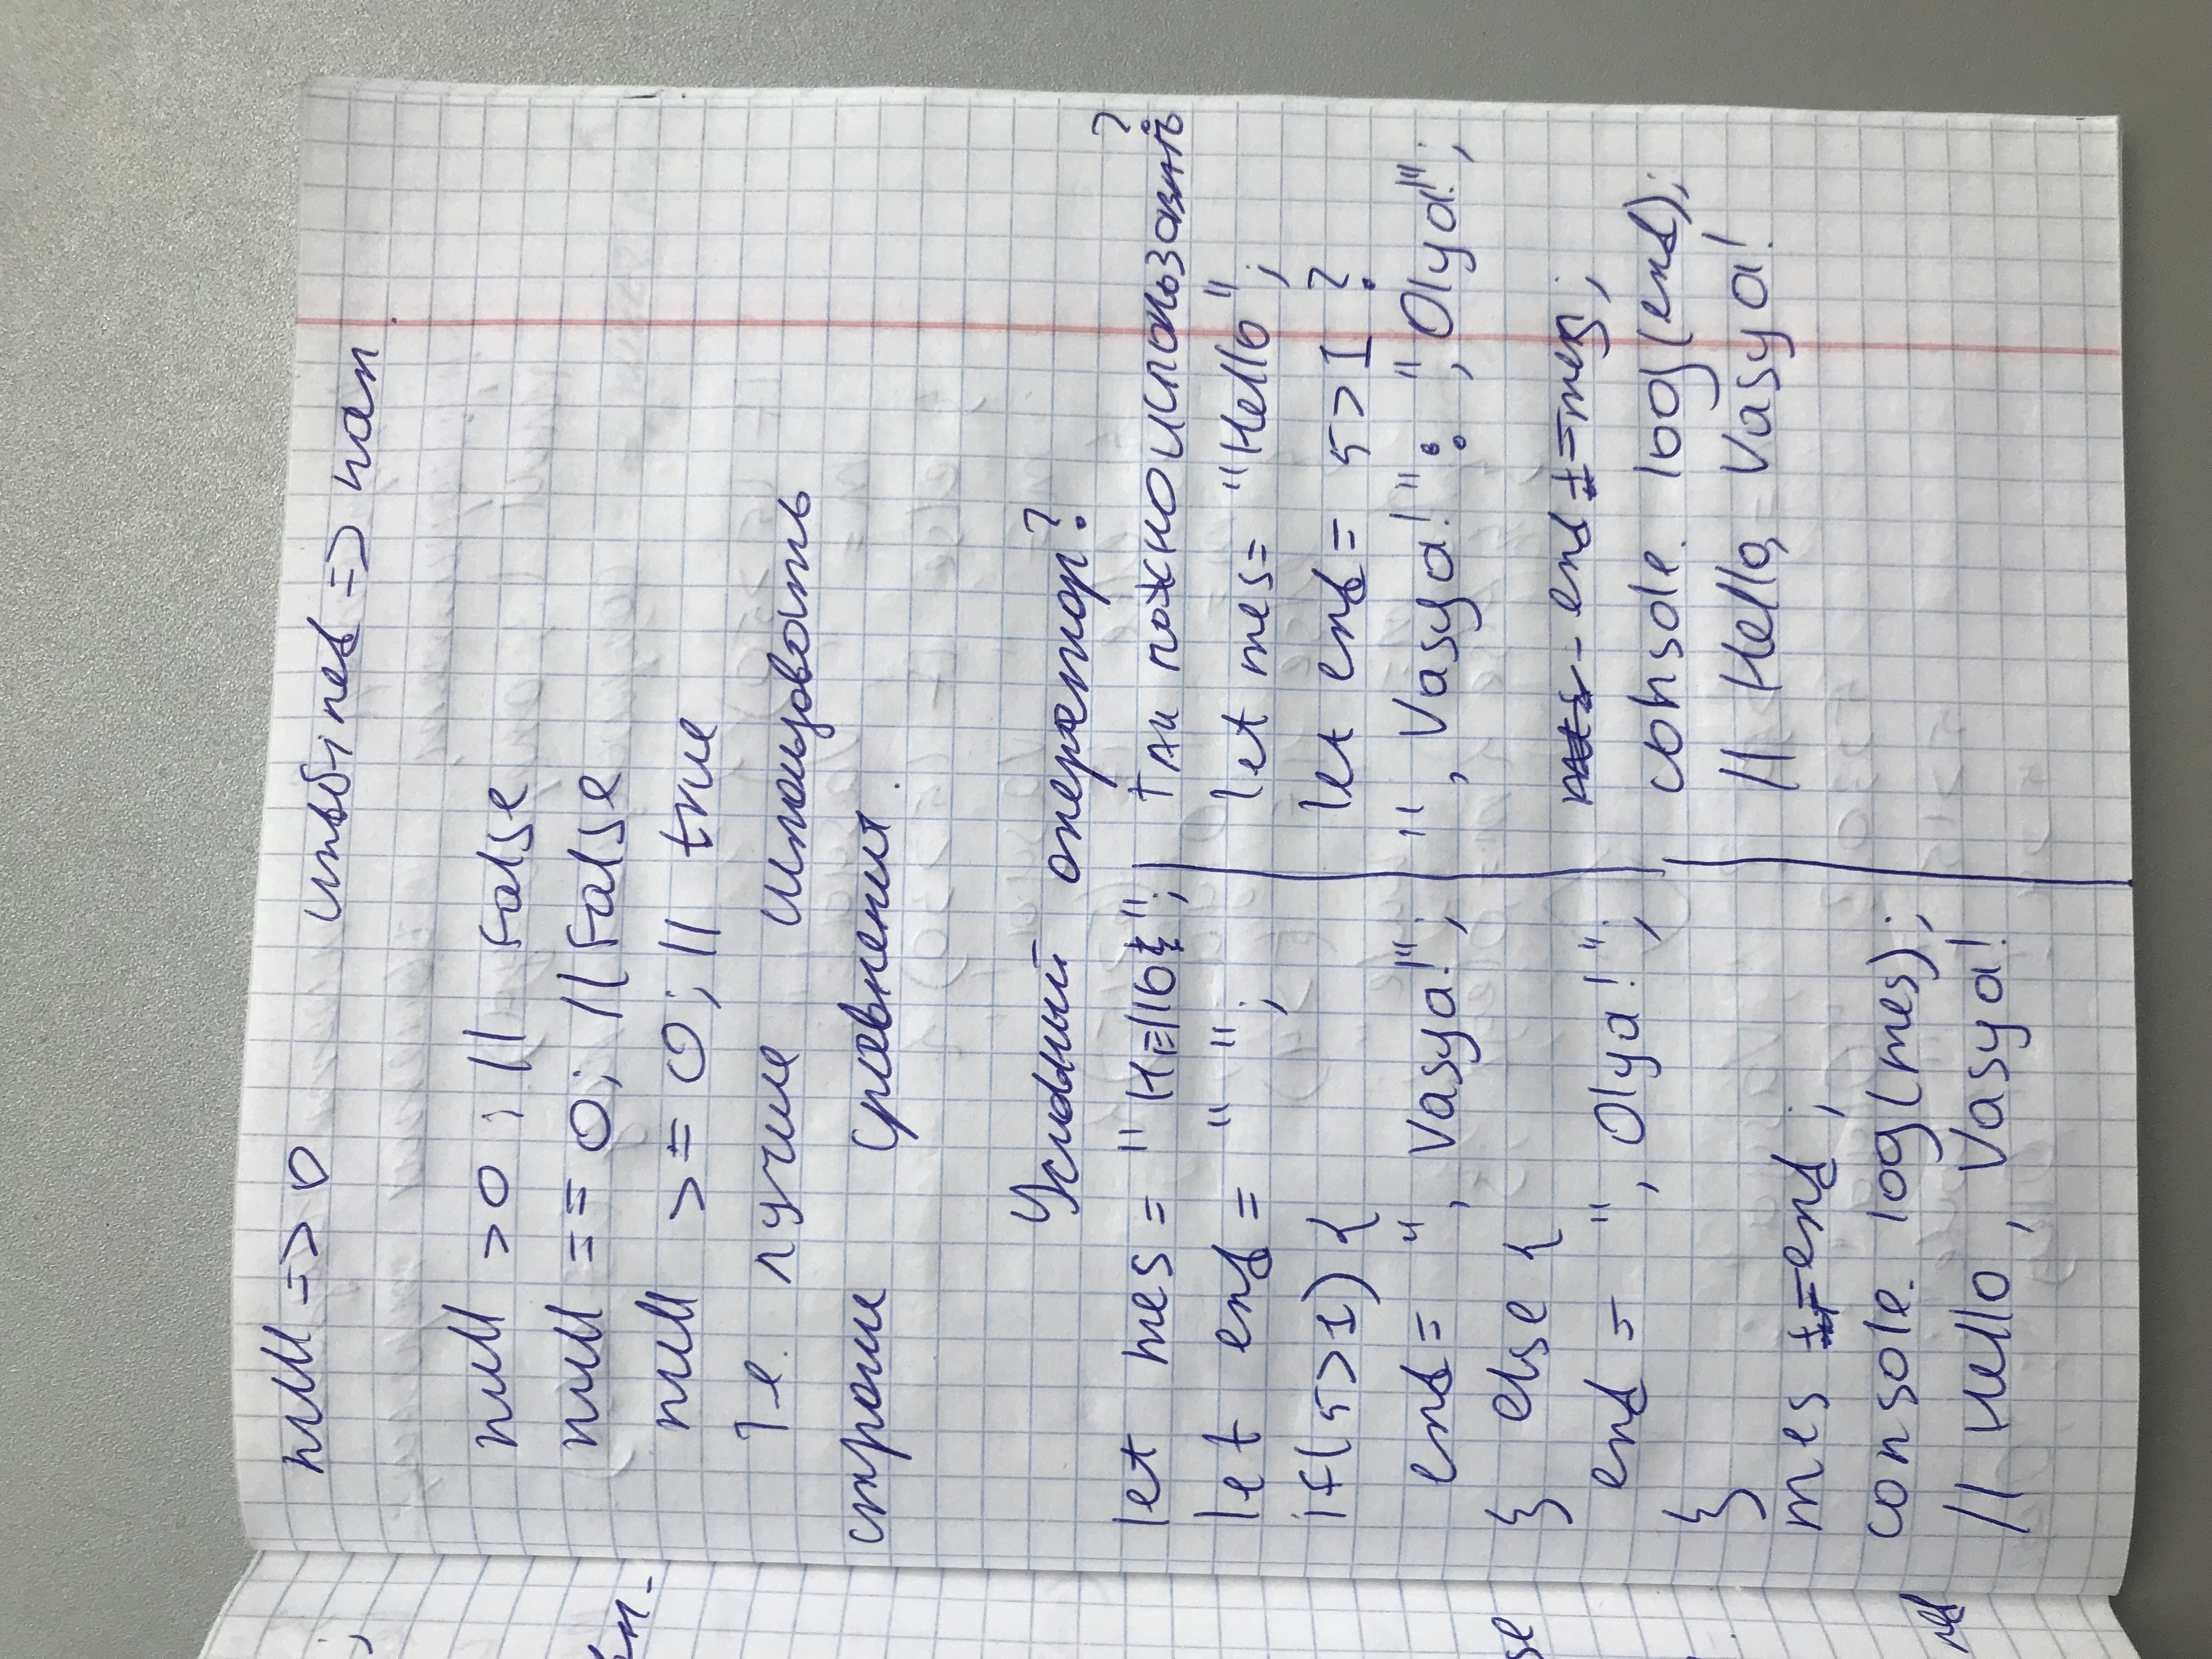 null => 0 undefined => nan
null > 0 ; // false
null == 0; // false
null >= 0; // true
Т.е. лучше использовать
строгие сравнения.
Условный оператор ?
let mes = "Hello";
let end = " ";
if(5>1) {
end = ", Vasya!";
} else {
end = ", Olya!";
}
mes += end ;
console.log(mes);
// Hello, Vasya!
Так можно использовать ?
let mes= "Hello";
let end = 5>1 ?
", Vasya!" : ", Olya!";
end +=mes;
console.log(end);
// Hello, Vasya!